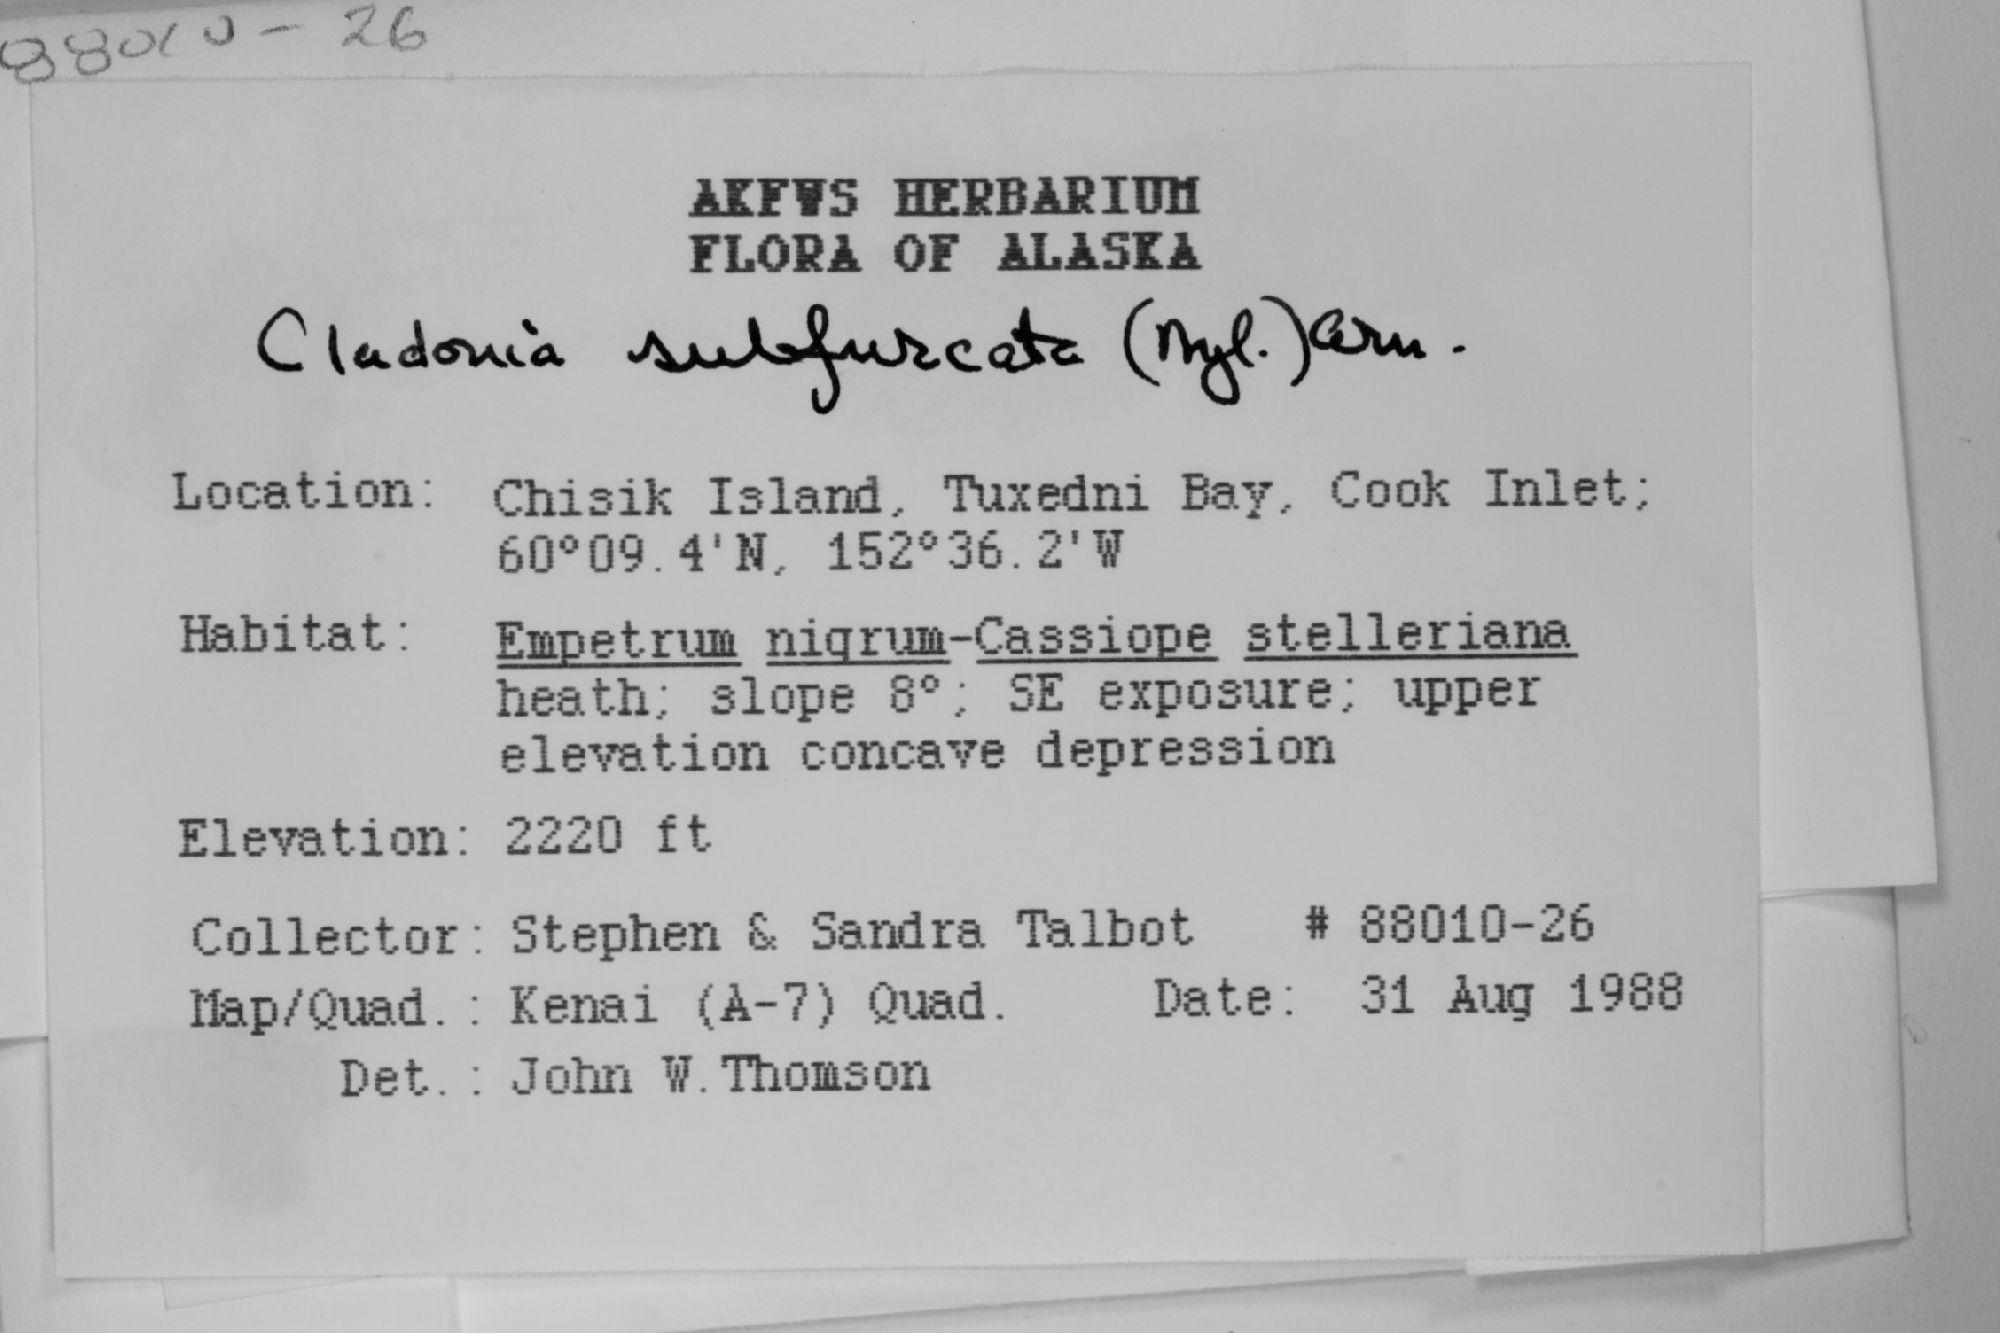 88010-26
AKFWS HERBARIUM
FLORA OF ALASKA
Cladonia subfurcata (Nyl.) Arn.
Location: Chisik Island, Tuxedni Bay, Cook Inlet;
60°09.4'N, 152°36.2'W
Habitat: Empetrum nigrum-Cassiope stelleriana
heath; slope 8°; SE exposure; upper
elevation concave depression
Elevation: 2220 ft
Collector: Stephen & Sandra Talbot # 88010-26
Map/Quad.: Kenai (A-7) Quad. Date: 31 Aug 1988
Det.: John W. Thomson